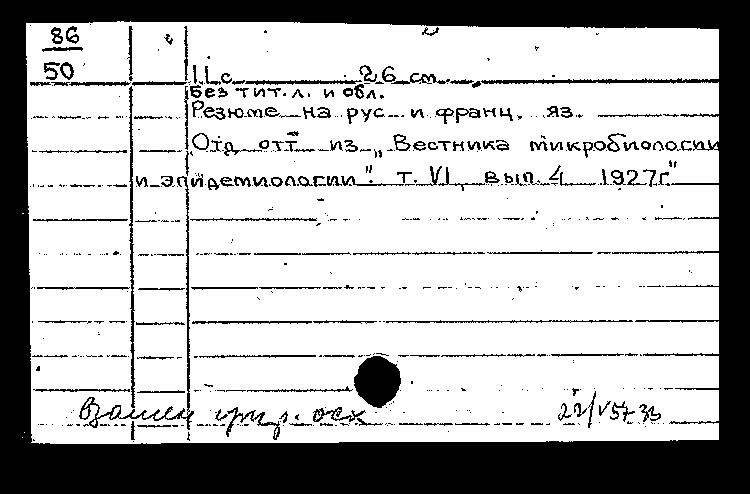 86
50
11 с. 26 см
Без тит. л. и обл.
Резюме на рус. и франц. яз.
Отд. отт. из „Вестника микробиологии
и эпидемиологии". т. VI, вып. 4 1927г."
Взамен
22/V 57